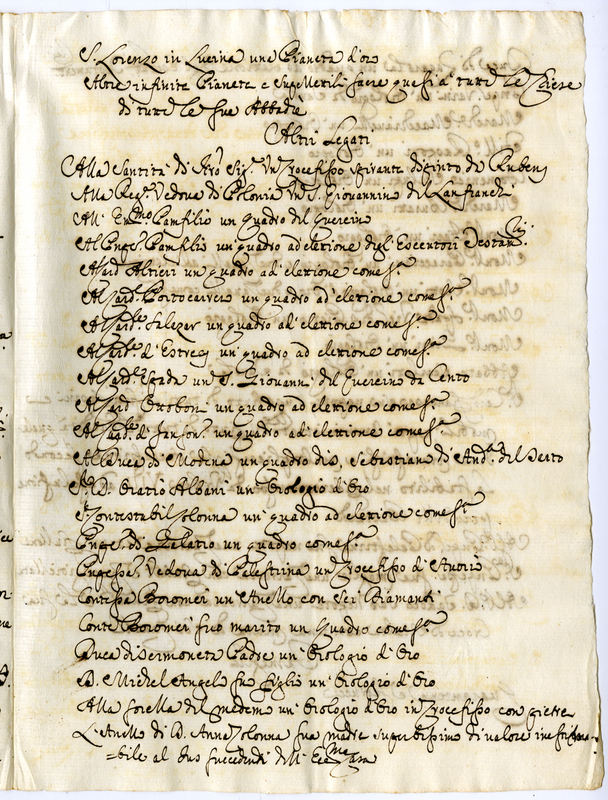 S. Lorenzo in Lucina una Pianeta d'oro
Altre infinite Pianete e Supellettili sacre quasi a' tutte le Chiese
di tutte le sue Abbadie
Altri Legati
Alla Santità di Nro Sigr. un Crocefisso spirante dipinto da Rubens
Alla Regª. Vedova di Polonia un S. Giovannino del Lanfranchi
All' Emmo Panfilio un Quadro del Guercin
Al Prnpe. Panfilio un quadro ad elezione degl' Essecutori Testamri:
Al Card Altieri un quadro ad' elezione come sª.
Al Card. Portocarero un quadro ad' elezione come sª.
Al Cardle Salezar un quadro ad' elezione come sª.
Al Cardle. d' Estrees un quadro ad elezione come sª.
Al Cardle. Spada un S. Giovanni del Guercino da Cento
Al Card Ottoboni un quadro ad elezione come sª.
Al Cardle. di Janson. un quadro ad elezione come sª.
Al Duca di Modena un quadro di S. Sebastiano di Andª. del Sarto
S. D. Oratio Albani un Orologio d' Oro
S. Contestabil Colonna un' quadro ad elezione come sª.
di un quadro come sª.
Vedova di Palestrina un Crocefisso d' Avorio
Contessa Boromei un Anello con Sei Diamanti
Conte Boromei suo marito un Quadro come sª.
Duca di Sermoneta Padre un' Orologio d' Oro
D. Michel Angelo suo figlio un' Orologio d' Oro
Alla sorella del medemo un' Orologio d' Oro in Crocefisso con pietre
L' Anello di D. Anna Colonna sua madre superbissimo di valore inestima-
=bile al suo succedendi dell' Ecc